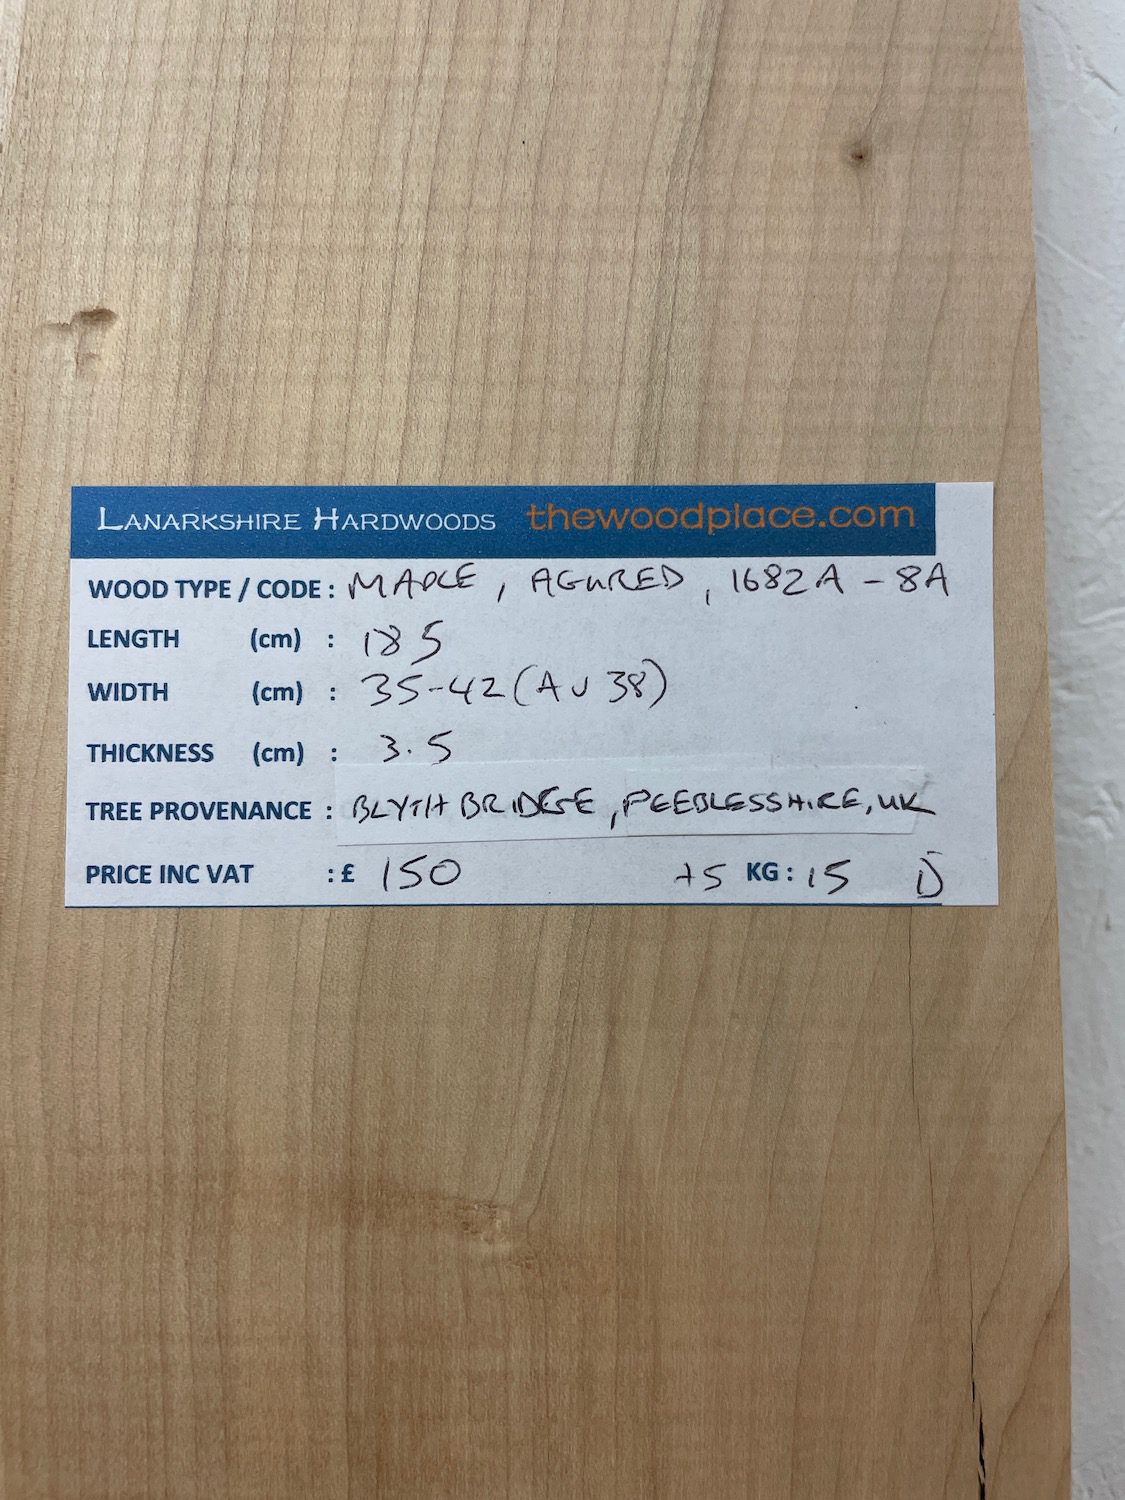 LANARKSHIRE HARDWOODS thewoodplace.com
WOOD TYPE / CODE : MAPLE, FIGURED, 1682A - 8A
LENGTH (cm) : 185
WIDTH (cm) : 35-42 (AV 38)
THICKNESS (cm) : 3.5
TREE PROVENANCE : BLYTH BRIDGE, PEEBLESSHIRE, UK
PRICE INC VAT : £ 150 +5 KG : 15 D